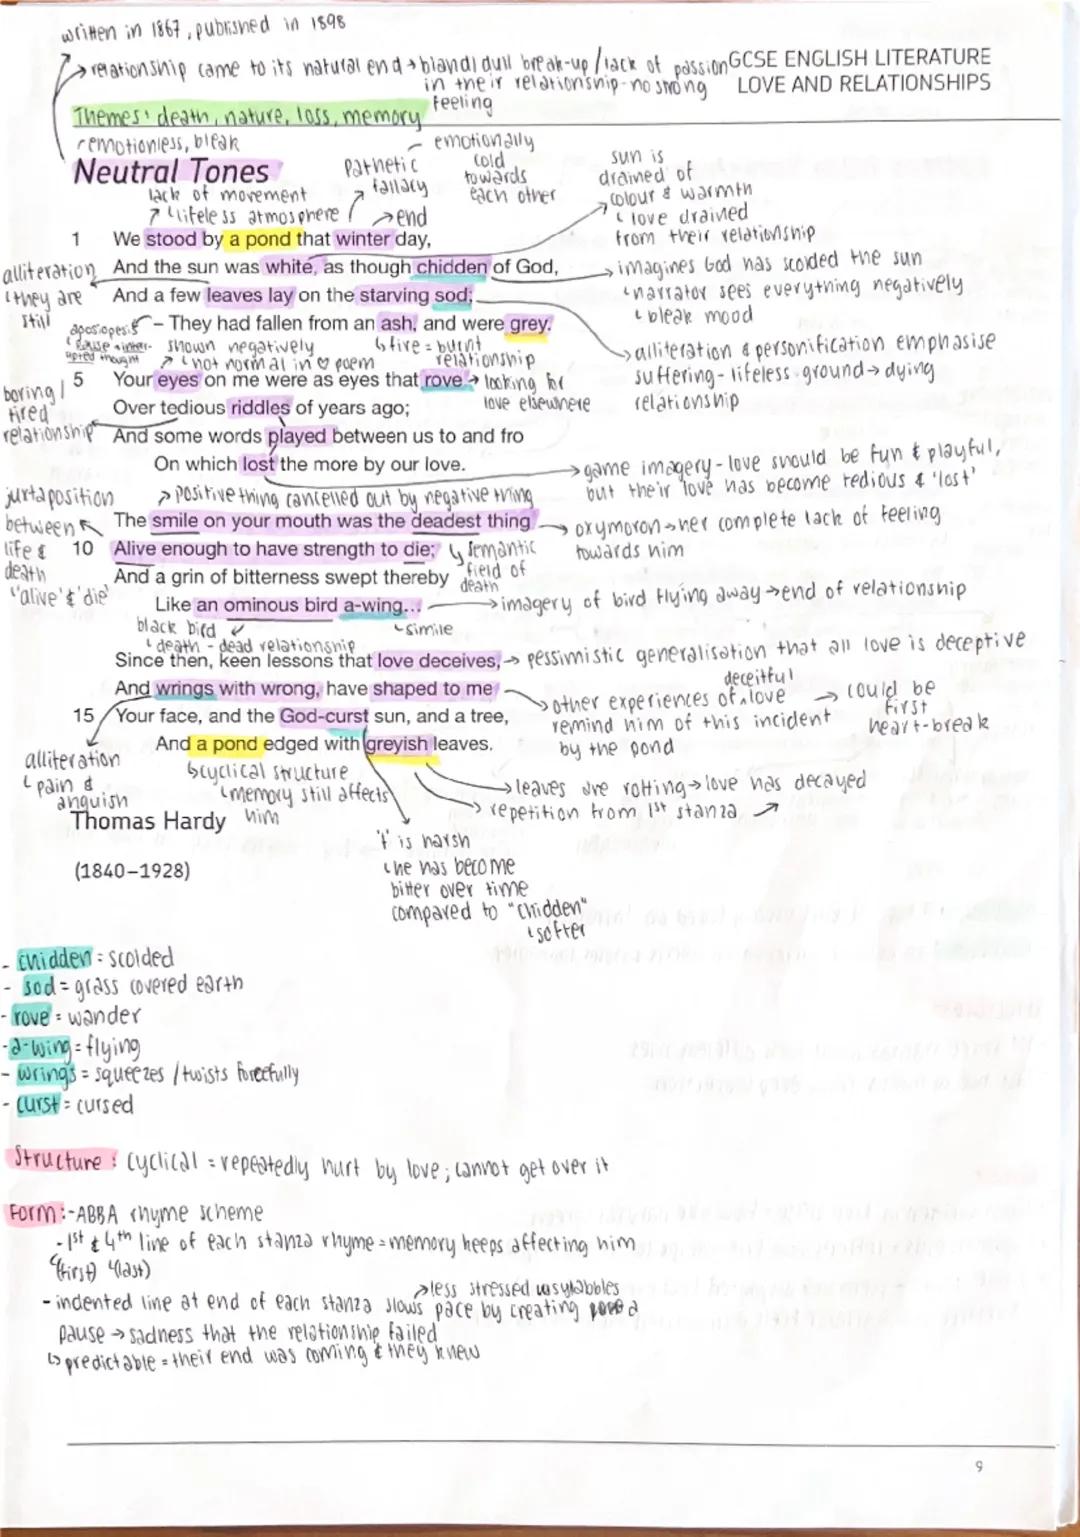 written in 1867, published in 1898
relationship came to its natural end → bland/dull break-up / lack of passion
in their relationship - no strong
feeling
GCSE ENGLISH LITERATURE
LOVE AND RELATIONSHIPS
Themes: death, nature, loss, memory
emotionless, bleak
Neutral Tones
lack of movement
lifeless atmosphere
pathetic
fallacy
→ end
emotionally
cold
towards
each other
sun is
drained of
colour & warmth
love drained
from their relationship
1 We stood by a pond that winter day,
alliteration
they are
still
And the sun was white, as though chidden of God,
imagines God has scolded the sun
narrator sees everything negatively
bleak mood
And a few leaves lay on the starving sod;
– They had fallen from an ash, and were grey.
aposiopesis
thought
shown negatively
not normal in ♡ poem
fire = burnt
relationship
alliteration & personification emphasise
suffering - lifeless ground → dying
relationship
5 Your eyes on me were as eyes that rove
→ looking for
love elsewhere
boring /
tired
relationship
Over tedious riddles of years ago;
And some words played between us to and fro
On which lost the more by our love.
→ game imagery - love should be fun & playful,
but their love has become tedious & 'lost'
→ positive thing cancelled out by negative thing
juxtaposition
between
life &
death
"alive' & 'die'
The smile on your mouth was the deadest thing
→ oxymoron → her complete lack of feeling
towards him
10 Alive enough to have strength to die;
semantic
field of
death
And a grin of bitterness swept thereby
Like an ominous bird a-wing...
→ imagery of bird flying away → end of relationship
black bird
death - dead relationship
simile
Since then, keen lessons that love deceives,
→ pessimistic generalisation that all love is deceptive
And wrings with wrong, have shaped to me
deceitful
other experiences of love
remind him of this incident
by the pond
→ could be
first
heart-break
15 Your face, and the God-curst sun, and a tree,
And a pond edged with greyish leaves.
alliteration
pain &
anguish
cyclical structure
memory still affects
him
→ leaves are rotting → love has decayed
→ repetition from 1st stanza
Thomas Hardy
(1840–1928)
't' is harsh
he has become
bitter over time
compared to "chidden"
softer
- chidden = scolded
- sod = grass covered earth
- rove = wander
- a-wing = flying
- wrings = squeezes / twists forcefully
- curst = cursed
Structure: cyclical = repeatedly hurt by love; cannot get over it
Form: - ABBA rhyme scheme
- 1st & 4th line of each stanza rhyme = memory keeps affecting him
(first) (last)
→ less stressed syllables
- indented line at end of each stanza slows pace by creating a
pause → sadness that the relationship failed
predictable = their end was coming & they knew
9